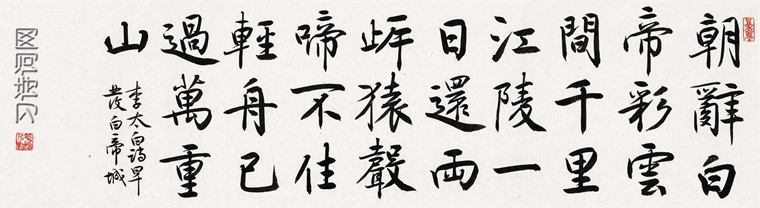 朝辭白
帝彩雲
間千里
江陵一
日還兩
岸猿聲
啼不住
輕舟已
過萬重
山
李太白詩早
發白帝城